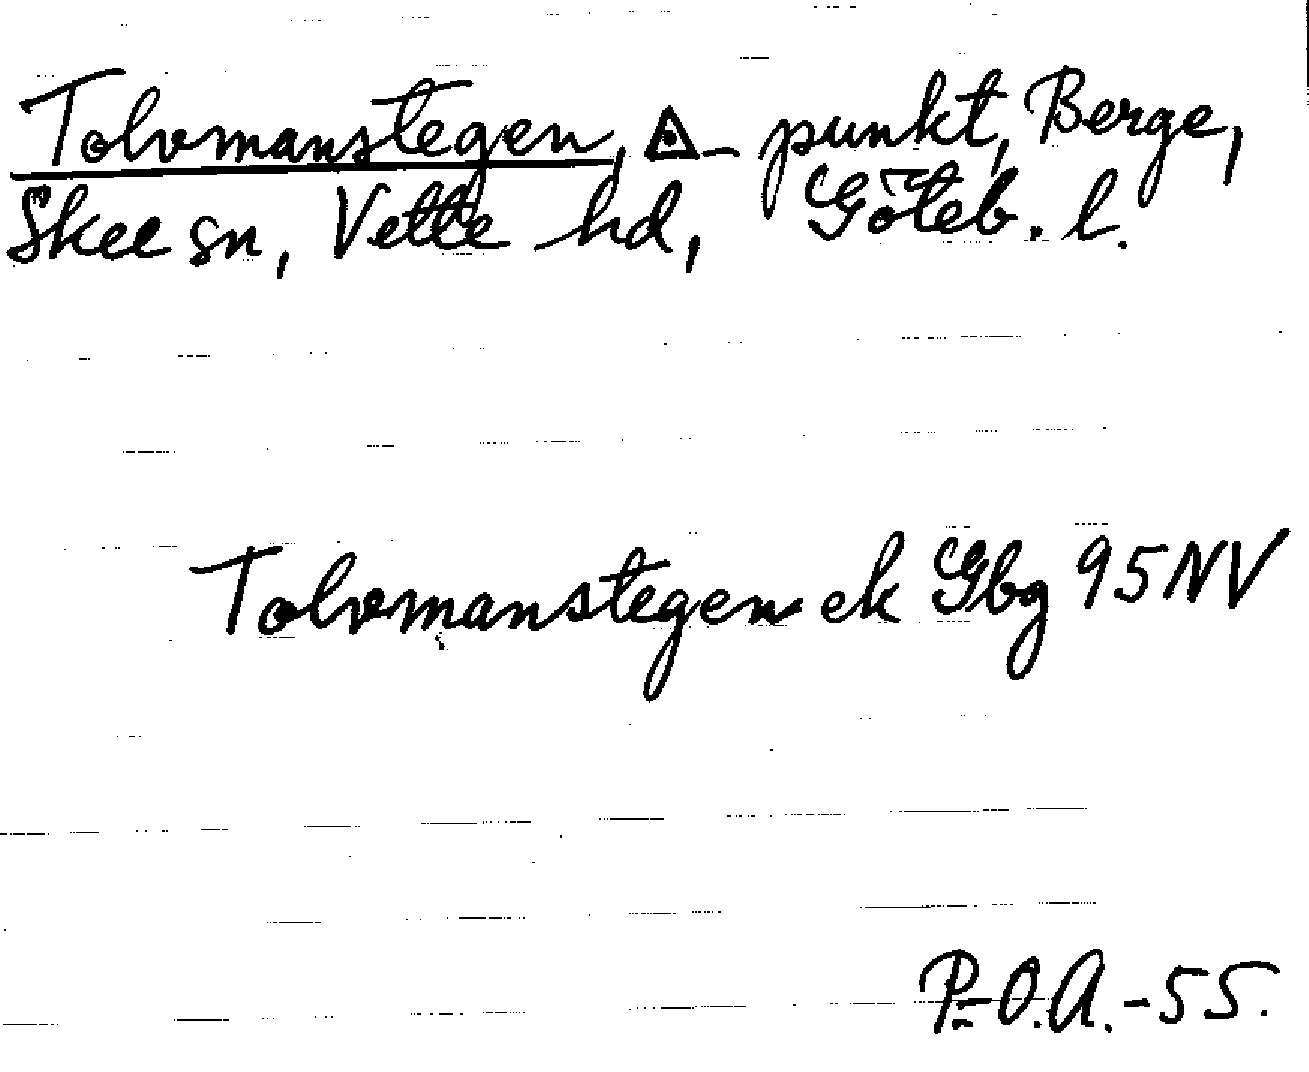 Tolvmanstegen, ◬-punkt, Berge,
Skee sn, Vette hd, Göteb. l.
Tolvmanstegen ek Gbg 95 NV
P.-O.A.-55.